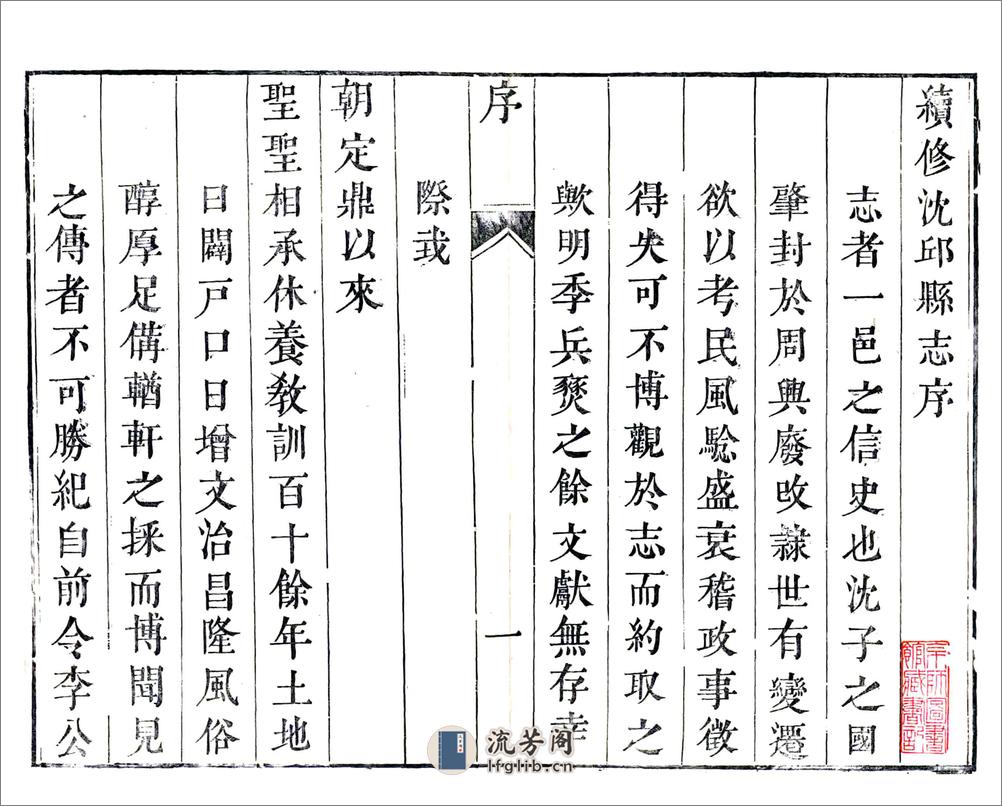 續修沈邱縣志序
志者一邑之信史也沈子之國
肇封於周興廢攺隷世有變遷
欲以考民風騐盛衰稽政事徵
得失可不博觀於志而約取之
歟明季兵燹之餘文獻無存幸
序
一
際我
朝定鼎以來
聖聖相承休養敎訓百十餘年土地
日闢戸口日增文治昌隆風俗
醇厚足備輶軒之採而博聞見
之傳者不可勝紀自前令李公
流芳阁
lfglib.cn